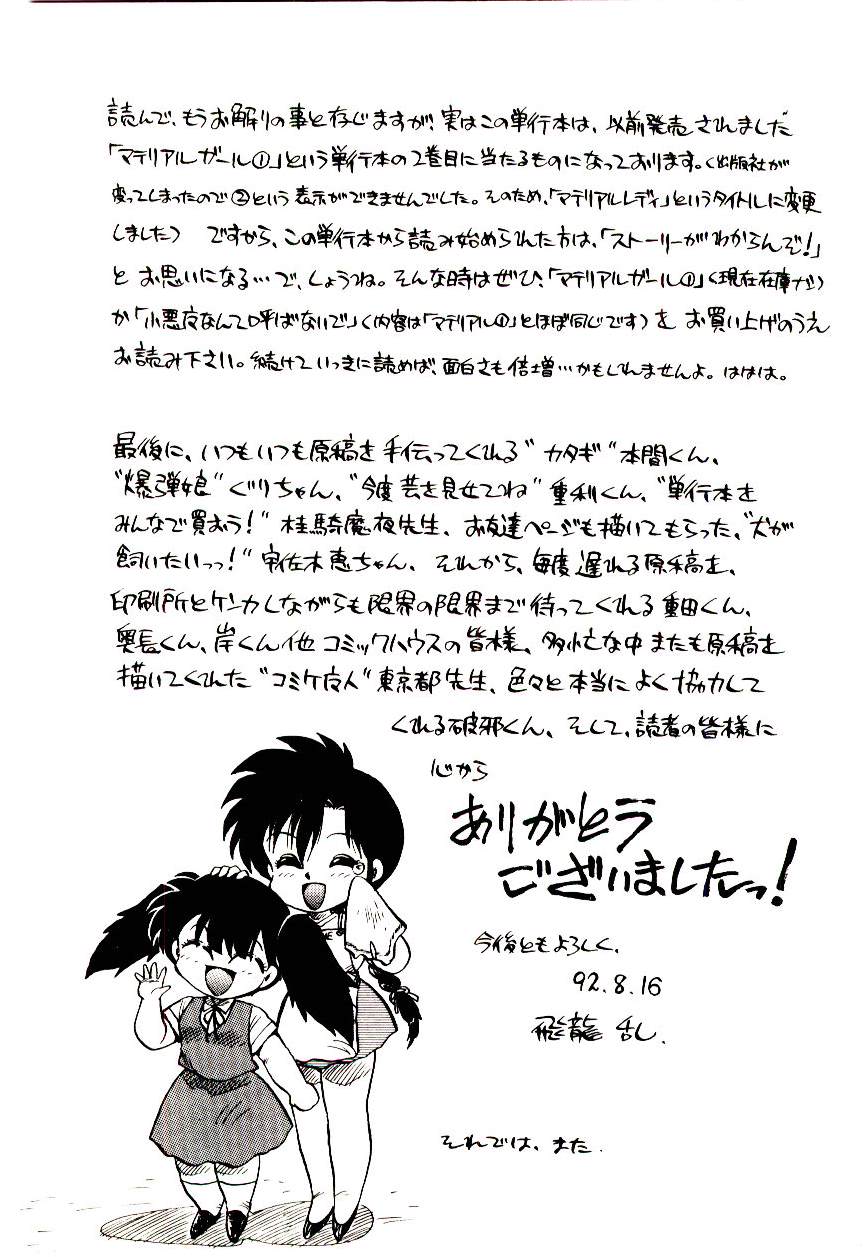 読んで、もうお解りの事と存じますが、実はこの単行本は、以前発売されました
「マテリアルガール①」という単行本の2巻目に当たるものになっております。(出版社が
変ってしまったので②という表示ができませんでした。そのため、「マテリアルレディ」というタイトルに変更
しました) ですから、この単行本から読み始められた方は、「ストーリーがわからんぞ!」
と お思いになる…で、しょうね。そんな時はぜひ、「マテリアルガール①」(現在在庫ナシ)
か「小悪夜なんて呼ばないで」(内容は「マテリアル①」とほぼ同じです)を お買い上げのうえ
お読み下さい。続けていっきに読めば、面白さも倍増…かもしれませんよ。ははは。
最後に、いつもいつも原稿を手伝ってくれる"カタギ"本間くん、
"爆弾娘"ぐりちゃん、"今度芸を見せてね"重利くん、"単行本を
みんなで買おう!"桂騎魔夜先生、お友達ページも描いてもらった、"犬が
飼いたいっっ!"宇佐木恵ちゃん、それから、毎度遅れる原稿を、
印刷所とケンカしながらも限界の限界まで待ってくれる重田くん、
奥長くん、岸くん他コミックハウスの皆様、多忙な中またも原稿を
描いてくれた"コミケ友人"東京都先生、色々と本当によく協力して
くれる破邪くん、そして、読者の皆様に
心から
ありがとう
ございましたっ!
今後ともよろしく、
92.8.16
飛龍 乱し.
それでは、また.